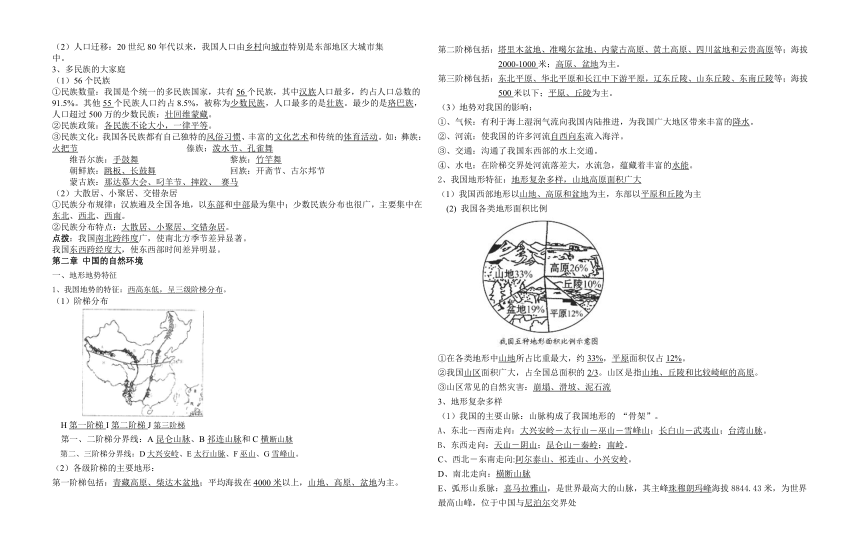 （2）人口迁移：20 世纪 80 年代以来，我国人口由乡村向城市特别是东部地区大城市集
中。
3、多民族的大家庭
（1）56 个民族
①民族数量：我国是个统一的多民族国家，共有 56 个民族，其中汉族人口最多，约占人口总数的
91.5%。其他 55 个民族人口约占 8.5%，被称为少数民族，人口最多的是壮族。最少的是珞巴族，
人口超过 500 万的少数民族：壮回维蒙藏。
②民族政策：各民族不论大小，一律平等。
③民族文化：我国各民族都有自己独特的风俗习惯、丰富的文化艺术和传统的体育活动。如：彝族：
火把节 傣族：泼水节、孔雀舞
维吾尔族：手鼓舞 黎族：竹竿舞
朝鲜族：跳板、长鼓舞 回族：开斋节、古尔邦节
蒙古族：那达慕大会、叼羊节、摔跤、 赛马
（2）大散居、小聚居、交错杂居
①民族分布规律：汉族遍及全国各地，以东部和中部最为集中；少数民族分布也很广，主要集中在
东北、西北、西南。
②民族分布特点：大散居、小聚居、交错杂居。
点拨：我国南北跨纬度广，使南北方季节差异显著。
我国东西跨经度大，使东西部时间差异明显。
第二章 中国的自然环境
一、地形地势特征
1、我国地势的特征：西高东低，呈三级阶梯分布。
（1）阶梯分布
H 第一阶梯 I 第二阶梯 J 第三阶梯
第一、二阶梯分界线：A 昆仑山脉、B 祁连山脉和 C 横断山脉
第二、三阶梯分界线：D 大兴安岭、E 太行山脉、F 巫山、G 雪峰山。
（2）各级阶梯的主要地形：
第一阶梯包括：青藏高原、柴达木盆地；平均海拔在 4000 米以上，山地、高原、盆地为主。
第二阶梯包括：塔里木盆地、准噶尔盆地、内蒙古高原、黄土高原、四川盆地和云贵高原等；海拔
2000-1000 米；高原、盆地为主。
第三阶梯包括：东北平原、华北平原和长江中下游平原，辽东丘陵、山东丘陵、东南丘陵等；海拔
500 米以下；平原、丘陵为主。
（3）地势对我国的影响：
①、气候：有利于海上湿润气流向我国内陆推进，为我国广大地区带来丰富的降水。
②、河流：使我国的许多河流自西向东流入海洋。
③、交通：沟通了我国东西部的水上交通。
④、水电：在阶梯交界处河流落差大，水流急，蕴藏着丰富的水能。
2、我国地形特征：地形复杂多样，山地高原面积广大
（1）我国西部地形以山地、高原和盆地为主，东部以平原和丘陵为主
(2) 我国各类地形面积比例
山地33%
高原26%
丘陵10%
盆地19%
平原12%
我国五种地形面积比例示意图
①在各类地形中山地所占比重最大，约 33%，平原面积仅占 12%。
②我国山区面积广大，占全国总面积的 2/3。山区是指山地、丘陵和比较崎岖的高原。
③山区常见的自然灾害：崩塌、滑坡、泥石流
3、地形复杂多样
（1）我国的主要山脉：山脉构成了我国地形的 “骨架”。
A、东北—西南走向：大兴安岭－太行山－巫山－雪峰山；长白山－武夷山；台湾山脉。
B、东西走向：天山－阴山；昆仑山－秦岭；南岭。
C、西北－东南走向:阿尔泰山、祁连山、小兴安岭。
D、南北走向：横断山脉
E、弧形山系脉：喜马拉雅山，是世界最高大的山脉，其主峰珠穆朗玛峰海拔 8844.43 米，为世界
最高山峰，位于中国与尼泊尔交界处